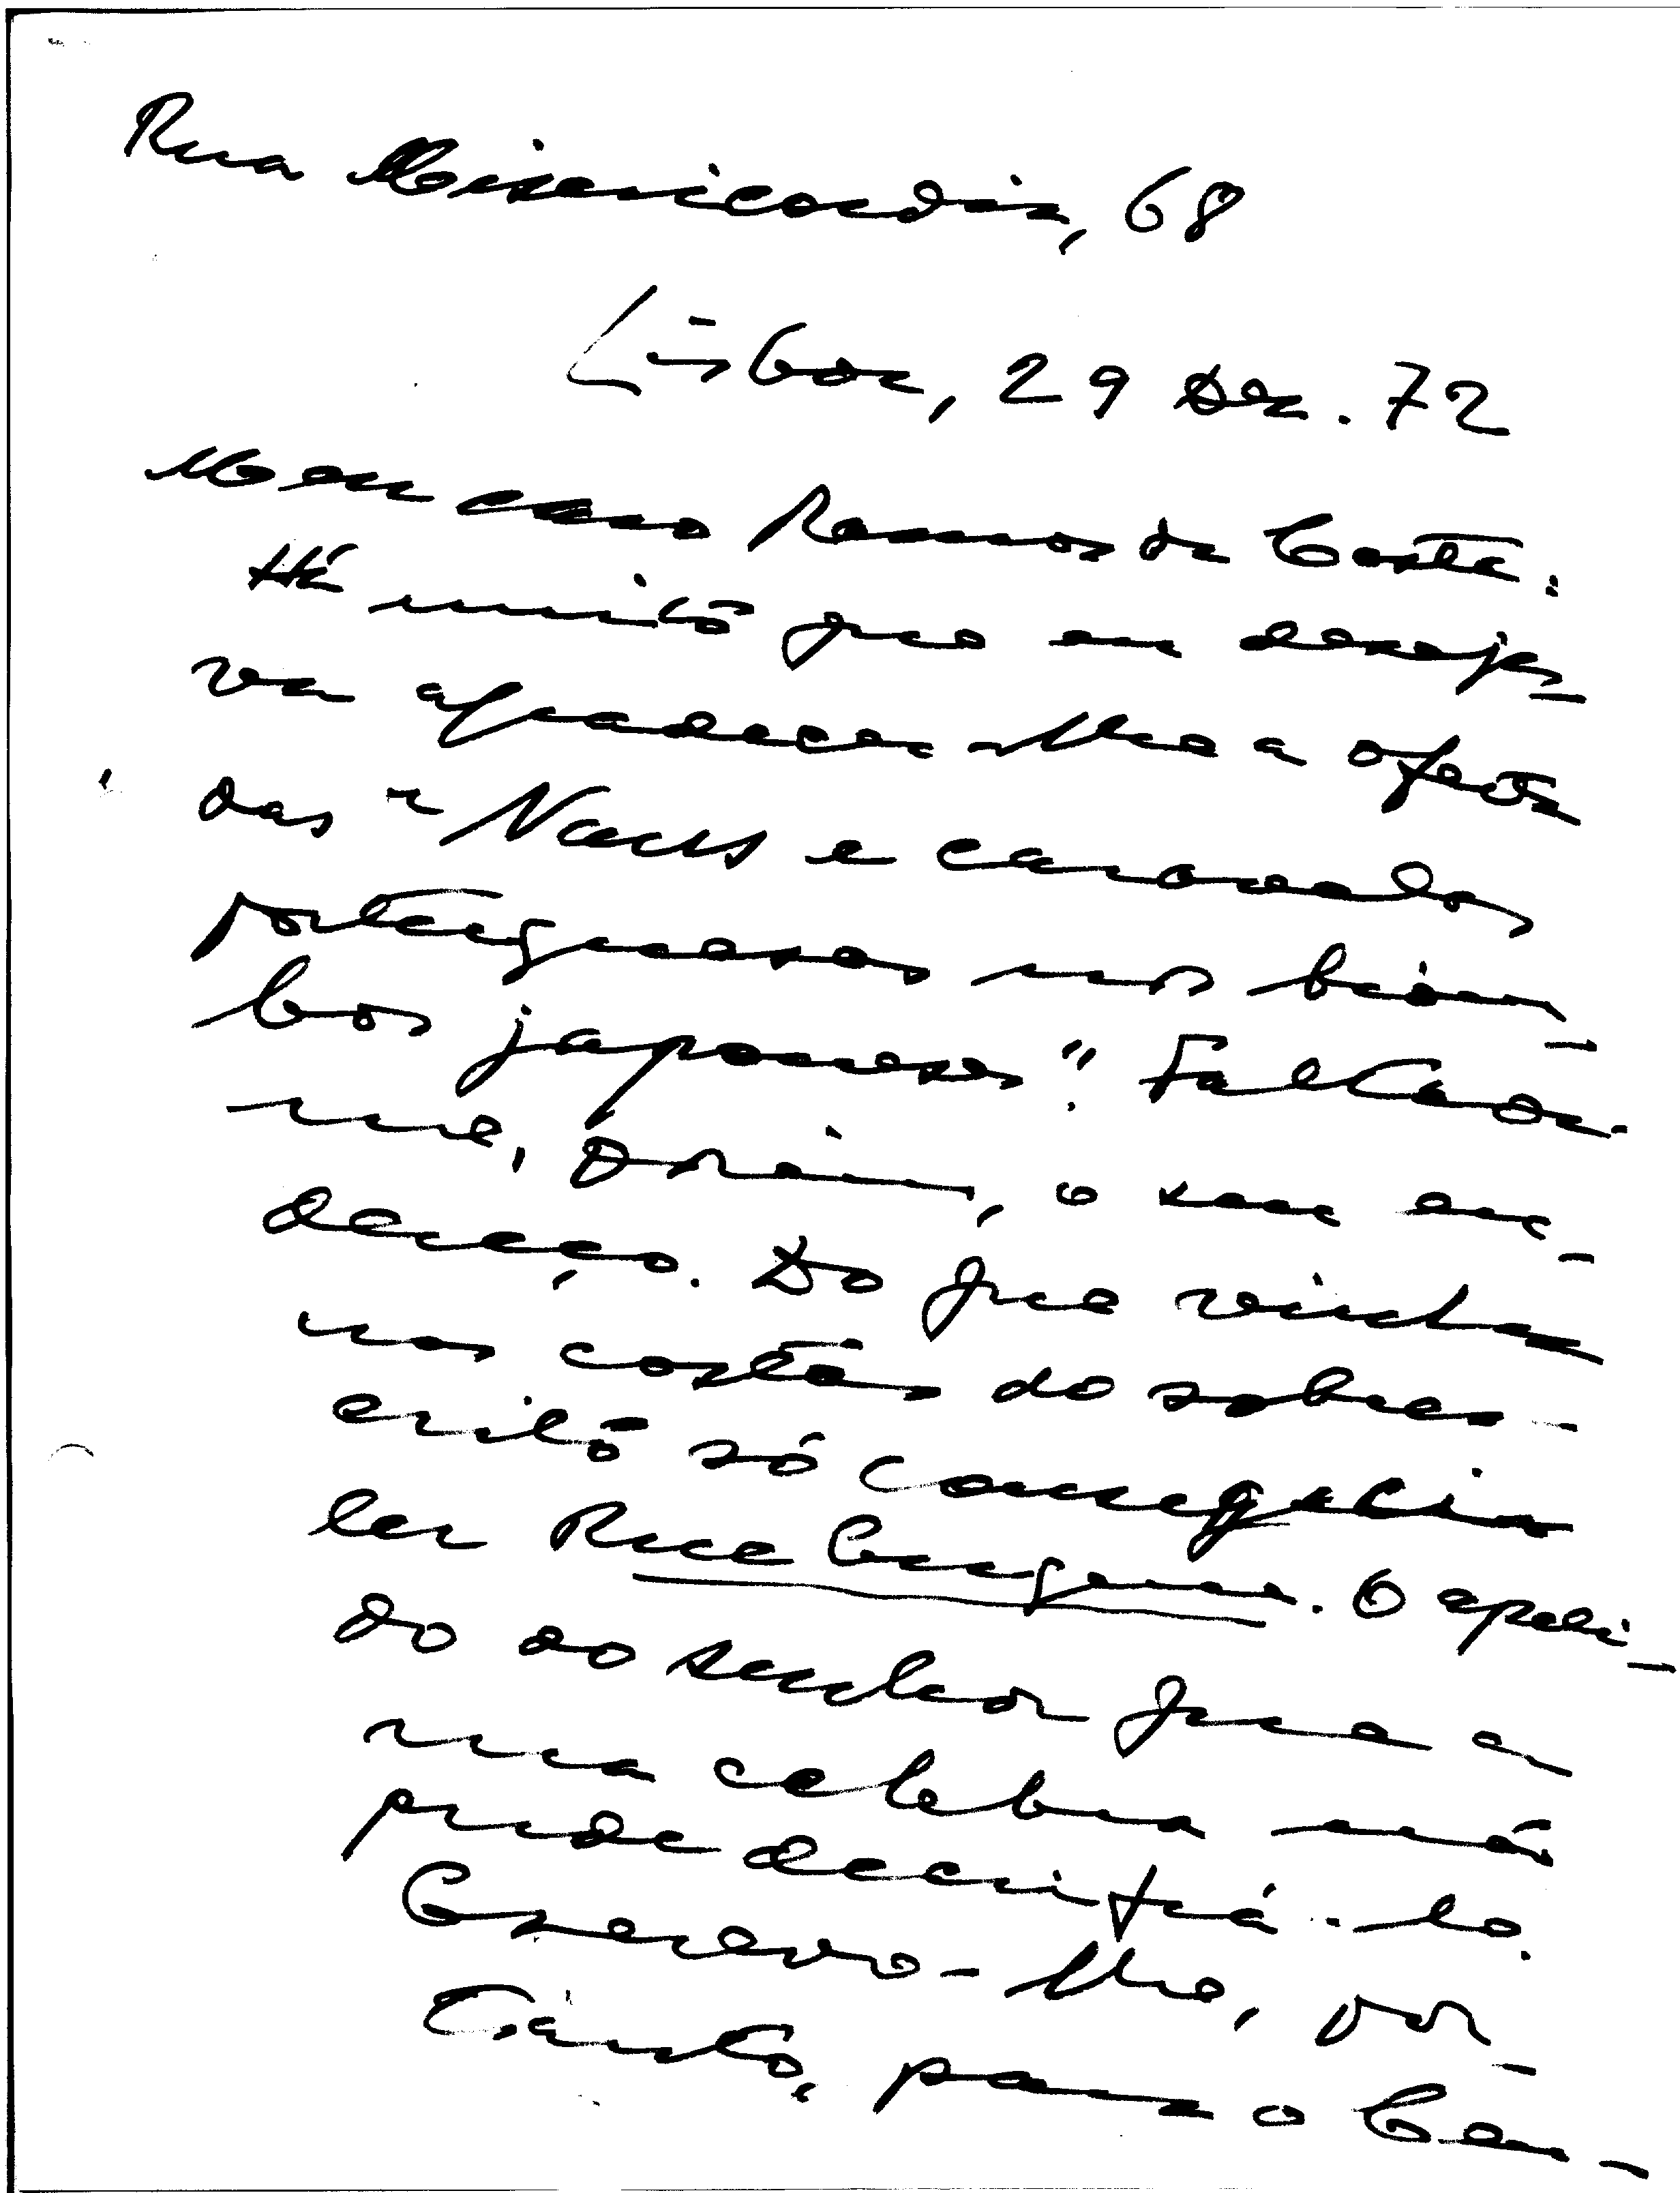 Rua Misericordia, 68
Lisboa, 29 Dez. 72
Meu caro Ramos da Costa:
Há muito que eu deseja-
va agradecer-lhe a oferta
das "Naus e caravelas
portuguesas nos biom-
bos japoneses". Faltava-
me, porém, o seu en-
dereço. Do que vinha
nas costas do sobres-
crito só conseguia
ler Rua Eugenio. O apeli-
do do senhor que a
rua celebra não
pude decifrá-lo.
Escrevo-lhe, por-
tanto, para o Cen-